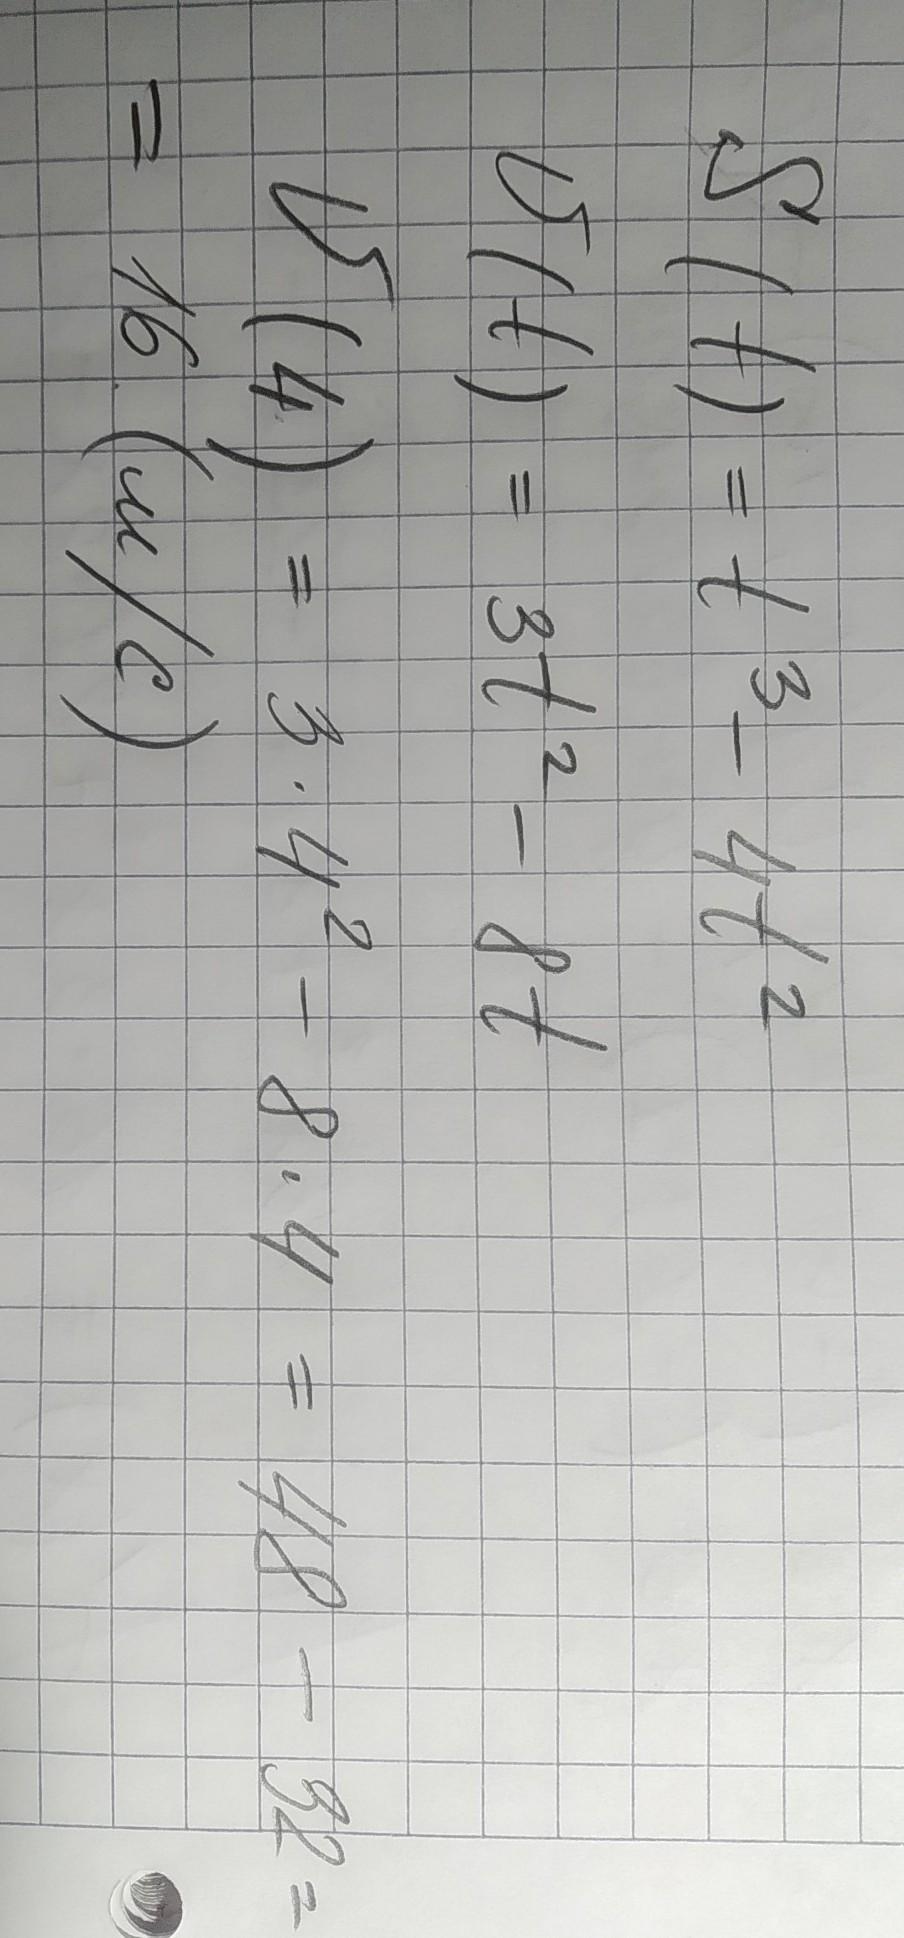 S(t) = t³ - 4t²
v(t) = 3t² - 8t
v(4) = 3·4² - 8·4 = 48 - 32 =
= 16 (м/с)